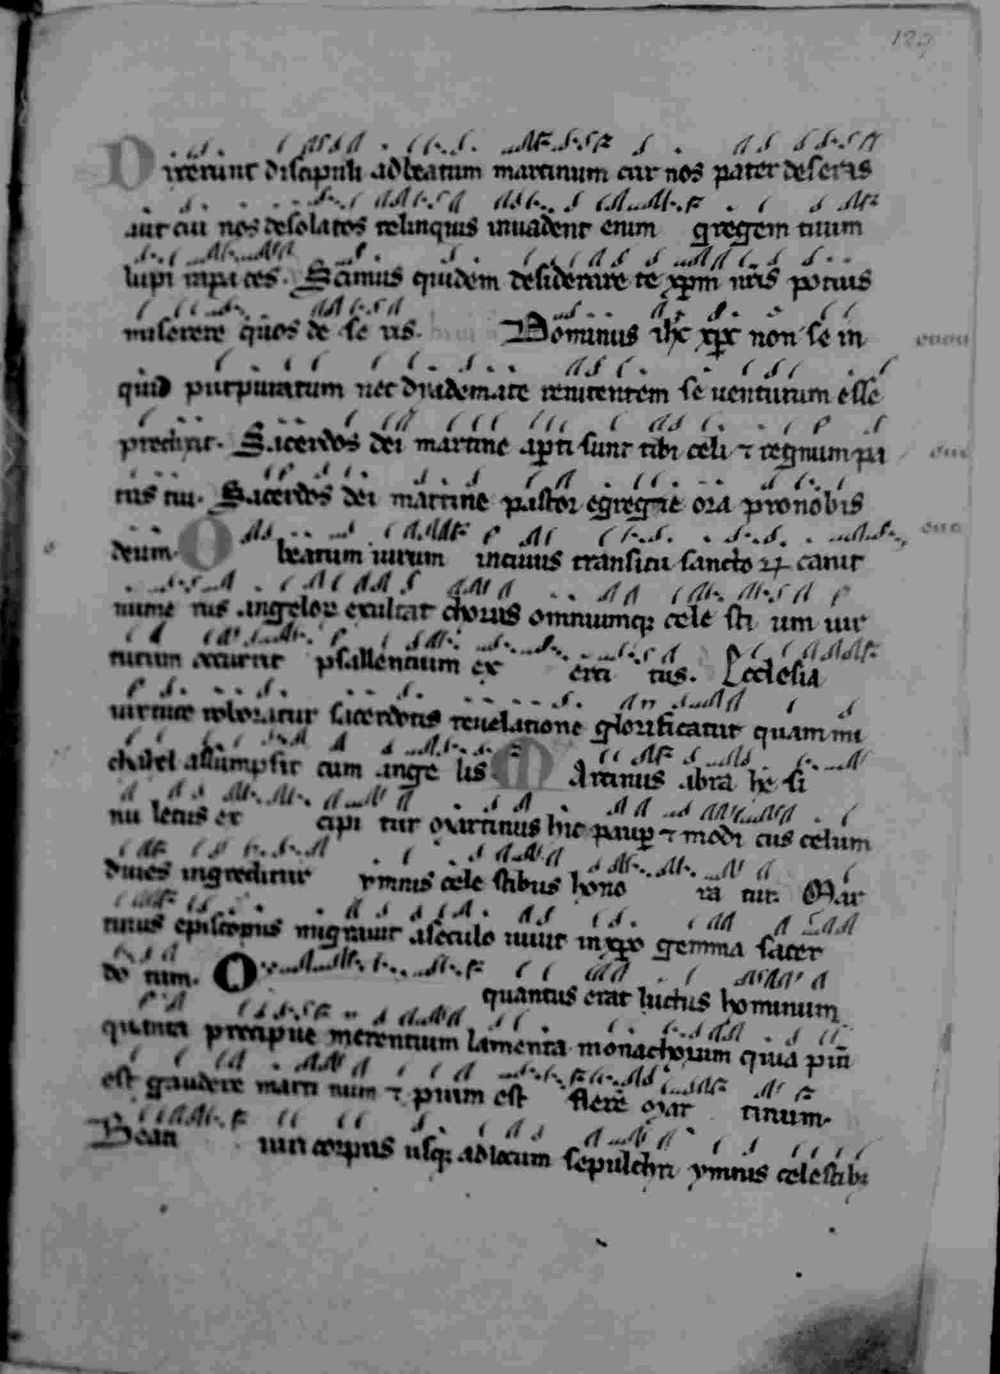 129
Dixerunt discipuli ad beatum martinum cur nos pater deseris
aut cui nos desolatos relinquis inuadent enim gregem tuum
lupi rapaces. Scimus quidem desiderare te xp̄m nr̄is potius
miserere quos deseris. Dominus ih̄c xp̄c non se in
quid purpuratum nec dyademate renitentem se uenturum esse
predixit. Sacerdos dei martine ap̄ti sunt tibi celi ⁊ regnum pa
tris tui. Sacerdos dei martine pastor egregie ora pro nobis
deum. O beatum uirum in cuius transitu sancto ꝝ canit
nume rus angeloꝝ exultat chorus omniumqꝫ cele sti um uir
tutum occurrit psallentium ex erci tus. Ecclesia
uirtute roboratur sacerdotis reuelatione glorificatur quam mi
chahel assumpsit cum ange lis Martinus abra he si
nu letus ex cipi tur Martinus hic paup̄ ⁊ modi cus celum
diues ingreditur ymnis cele stibus hono ra tur. Mar
tinus episcopus migrauit a seculo uiuit in xp̄o gemma sacer
do tum. O quantus erat luctus hominum
quanta precipue merentium lamenta monachorum quia piū
est gaudere marti num ⁊ pium est flere Mar tinum.
Beati uiri corpus usqꝫ ad locum sepulchri ymnis celestibꝫ